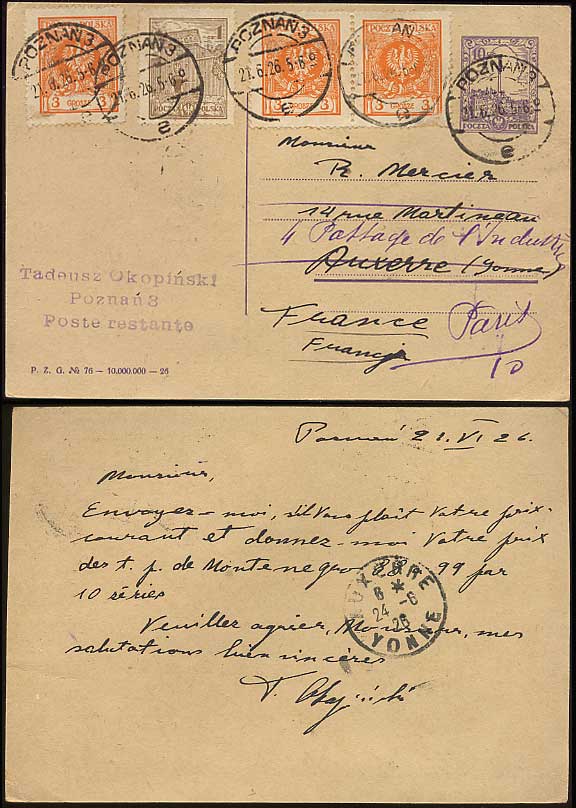 POCZTA POLSKA
3 GROSZE 3
1
POCZTA POLSKA
3 GROSZE 3
3 GROSZE 3
10
POCZTA POLSKA
POZNAŃ 3
21.6.26.5-6
POZNAŃ 3
21.6.26.5-6
POZNAŃ 3
21.6.26.5-6
POZNAŃ 3
21.6.26.5-6
Monsieur
R. Mercier
14 rue Martineau
4 Passage de l'Industrie
Auxerre (Yonne)
France
Paris
Francja
10
Tadeusz Okopiński
Poznań 3
Poste restante
P. Z. G. № 76 – 10.000.000 – 26
Poznań 21. VI 26.
Monsieur,
Envoyez-moi, s'il Vous plait Votre prix-
courant et donnez-moi Votre prix
des t. p. de Montenegro 99 par
10 séries
Veuillez agréer, Monsieur, mes
salutations bien sincères
T. Okopiński
AUXERRE
6 *
24 -6
26
YONNE